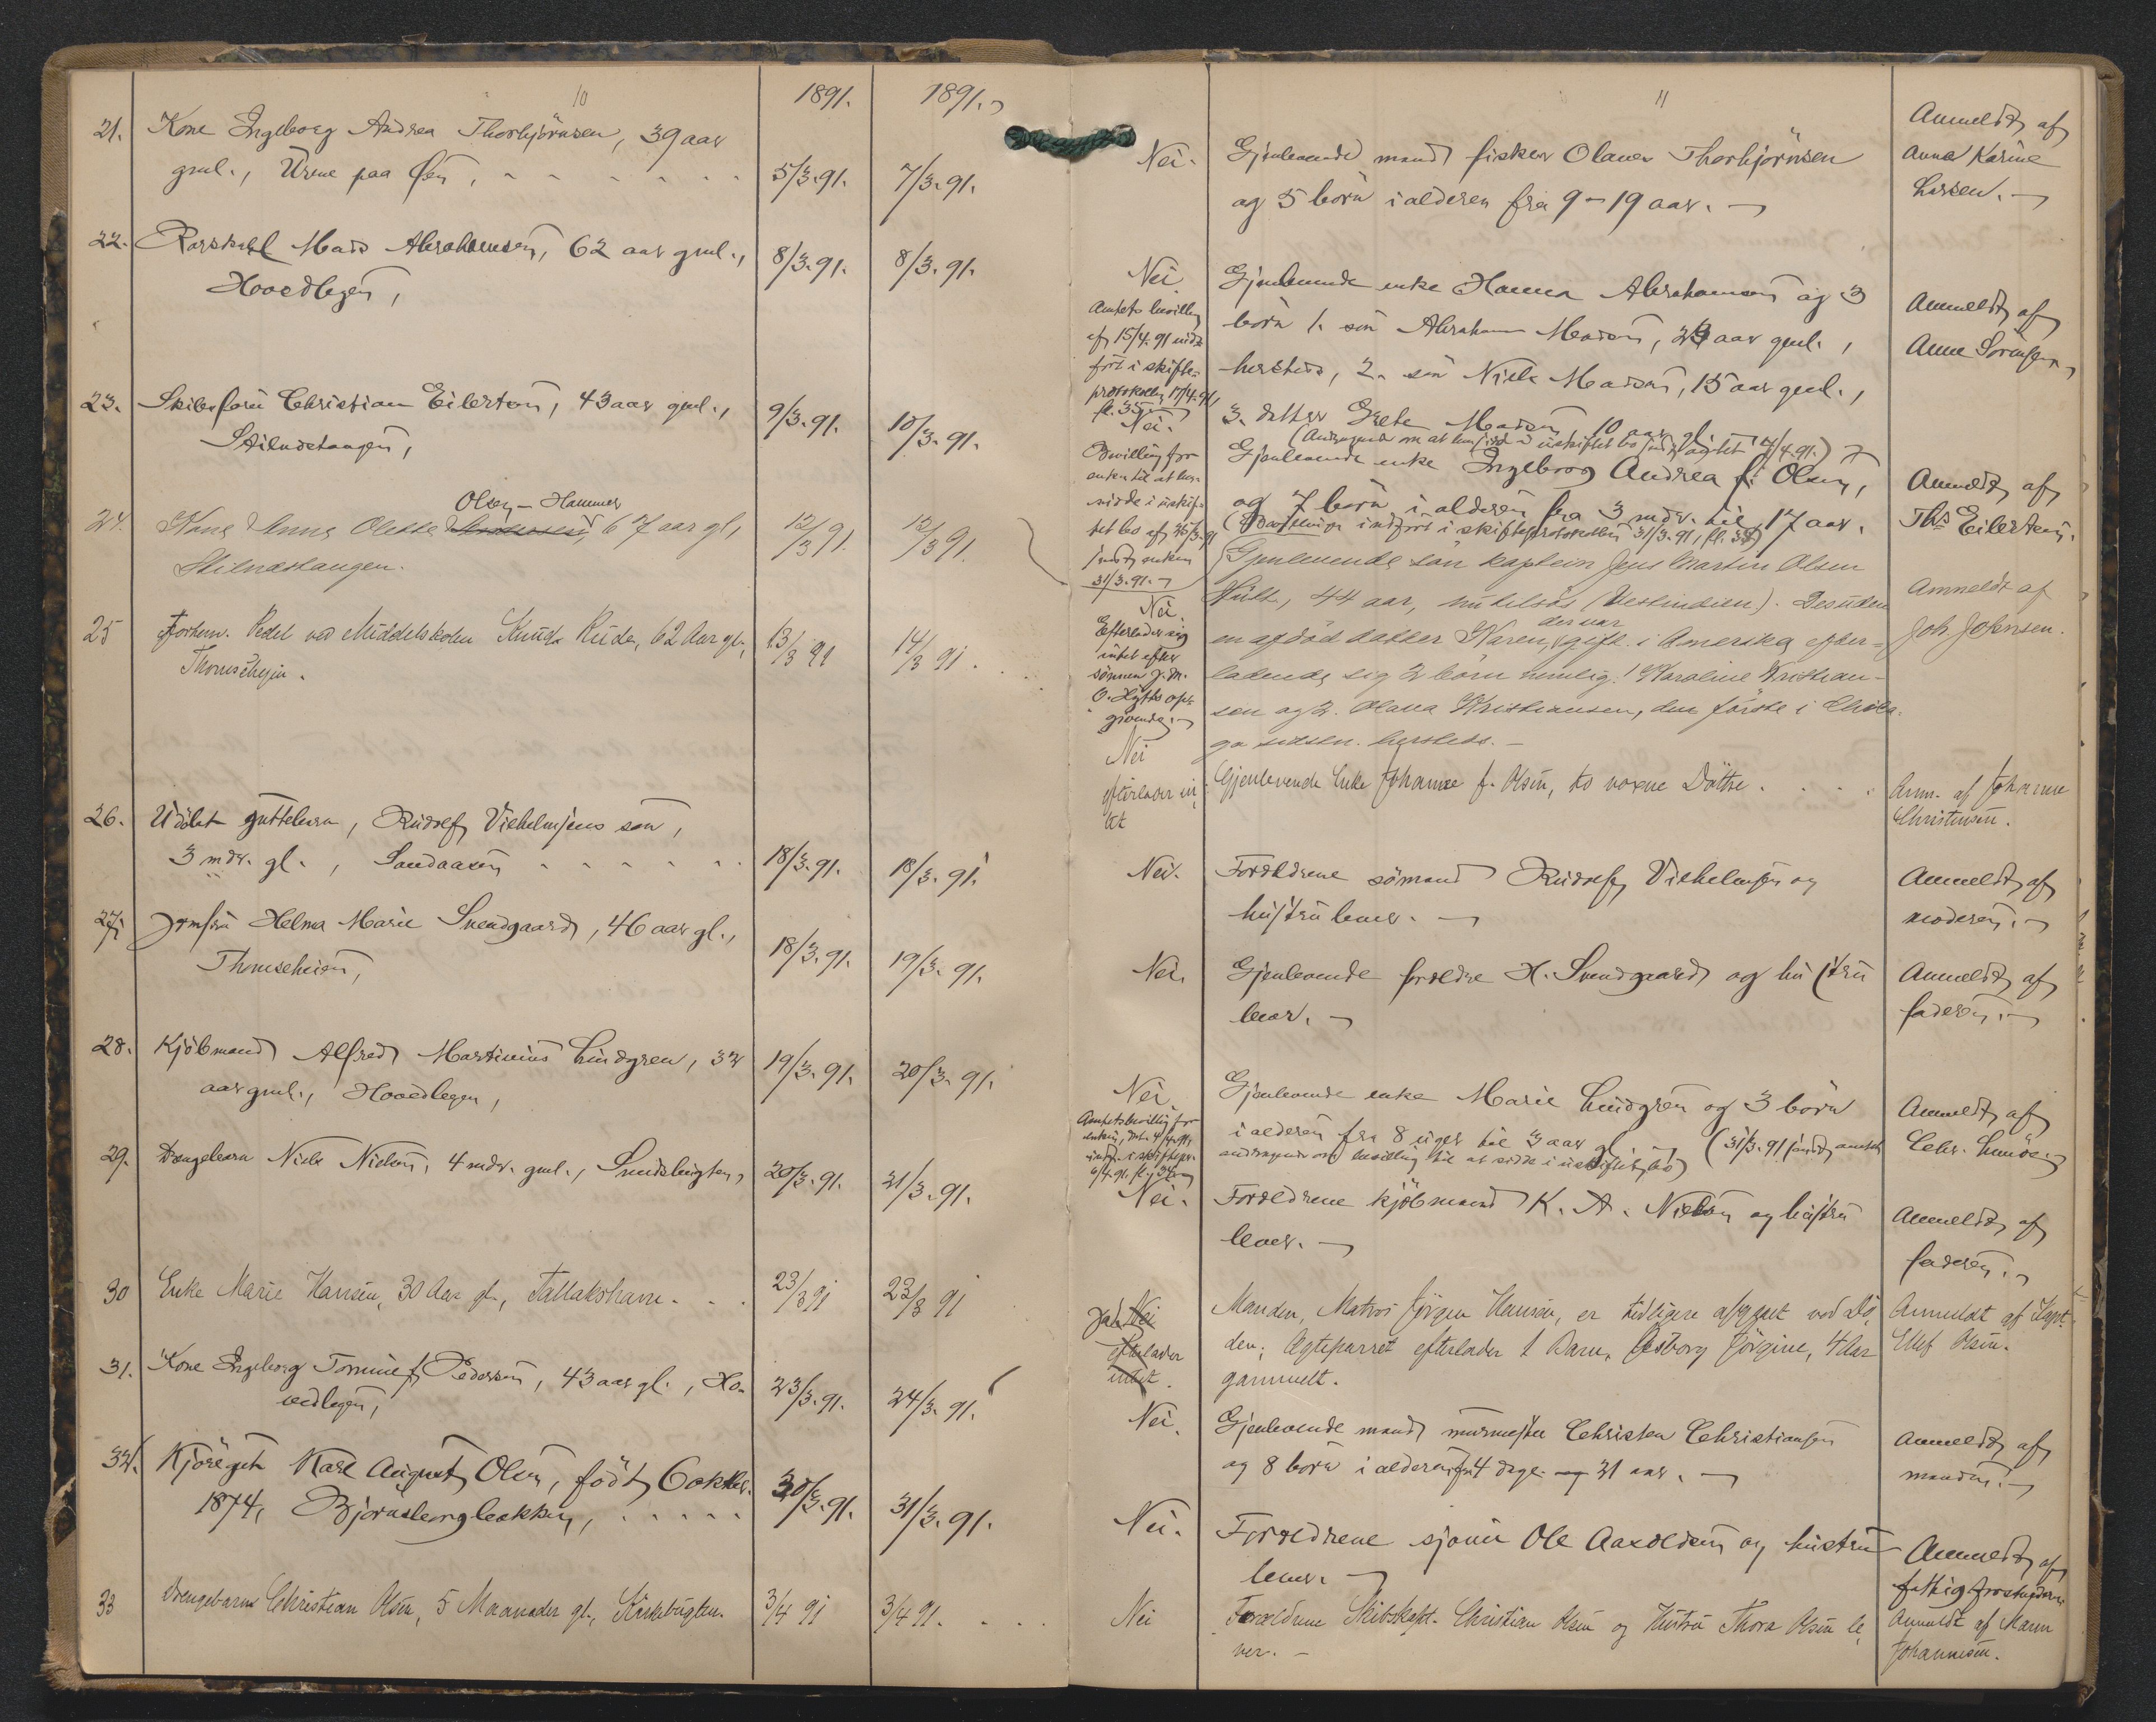 10
1891. 1891.
21. Kone Ingeborg Andrea Thorbjörnsen, 39 aar
gml., Urene paa Øen, 5/3.91. 7/3.91.
22. Mads Abrahamsen, 62 aar gml., 8/3.91. 8/3.91.
Hovedlegen,
23. Skibsförer Christian Eilertsen, 43 aar gml., 9/3.91. 10/3.91.
Stilnestangen,
Olsen - Hammer
24. Anna Olette Andersen, 67 aar gl, 12/3 91. 12/3 91.
Stilnestangen.
25 Forhenv. Pedel ved Middelskolen Knud Rude, 62 Aar gl., 13/3 91 14/3 91.
Thomsehejen.
26. Udöbt guttebarn, Rudolf Vilhelmsens sön,
3 mdr. gl., Sandaasen 18/3.91. 18/3.91.
27. Jomfru Helma Marie Svendgaard, 46 aar gl., 18/3.91. 19/3.91.
Thomseheien,
28. Kjöbmand Alfred Martinius Lindgren, 32 19/3.91. 20/3.91.
aar gml., Hovedlegen,
29. Drengebarn Niels Nielsen, 4 mdr. gml., Smidsbugten, 20/3.91. 21/3.91.
30 Enke Marie Hansen, 30 Aar gl., Tallakshavn. 23/3 91 23/3 91
31. Kone Ingeborg Tomine f. Pedersen, 43 aar gl., Ho- 23/3.91. 24/3.91.
vedlegen,
32. Kjöregut Karl August Olsen, födt 6 oktbr. 30/3.91. 31/3.91.
1874,
33 Drengebarn Christian Olsen, 5 Maaneder gl., Kirkebugten. 3/4 91 3/4 91.
11
Nei. Gjenlevende mand fisker Olaves Thorbjörnsen
og 5 börn i alderen fra 9 - 19 aar.
Anmeldt af
Anna Karine
Larsen.
Nei.
Amtets bevilling
af 15/4.91 ind-
fört i skifte-
protokollen 17/4.91,
fl. 35
Gjenlevende enke Hanna Abrahamsen og 3
börn 1. sön Abraham Madsen, 23 aar gml.,
hersteds, 2. sön Niels Madsen, 15 aar gml.,
3. datter Grete Madsen 10 aar gl.
Anmeldt af
Anne Sörensen
Nei.
Bevilling for
enken til at hen-
sidde i uskif-
tet bo af 25/3.91
sendt enken
31/3.91.
Gjenlevende enke Ingeborg Andrea f. Olsen,
og 7 börn i alderen fra 3 mdr. til 17 aar.
(Bevillingen indfört i skifteprotokollen 31/3.91, fl. 33)
Anmeldt af
Ths Eilertsen.
Nei.
Efterlader sig
intet efter
sönnen J. M.
O. Hylts op-
givende.
Gjenlevende sön kaptein Jens Martin Olsen
Hült, 44 aar, (Vestindien). Desuden
der var
en afdöd datter Karen, gift i Amerika efter-
ladende sig 2 börn nemlig: 1 Karoline Kristian-
sen og 2. Olava Kristiansen, den förste i Chica-
go sidstn. hersteds.
Anmeldt af
Joh Johnsen.
Nei
efterlader in-
tet
Gjenlevende Enke Johanne f. Olsen, to voxne Döttre.
Anm. af Johanne
Christensen.
Nei. Forældrene sömand Rudolf Vilhelmsen og
hustru lever.
Anmeldt af
moderen.
Nei. Gjenlevende forældre H. Svendgaard og hustru
lever.
Anmeldt af
faderen.
Nei.
Amtsbevilling for
enken, dat. 4/4.91,
indf. i skiftepr.
6/4.91. fl. 34
Gjenlevende enke Marie Lindgren og 3 börn
i alderen fra 8 uger til 3 aar gl. (31/3.91 sendt amtet
andragende om bevilling til at sidde i uskiftet bo)
Anmeldt af
Chr.
Nei. Forældrene kjöbmand K. A. Nielsen og hustru
lever.
Anmeldt af
faderen.
Ja Nei
efterlader
intet.
Manden, Matros Jörgen Hansen, er tidligere afgaaet ved Dö-
den; Ægteparret efterlader 1 Barn, Aasborg Jörgine, 4 Aar
gammelt.
Anmeldt af Kapt.
Ellef Olsen.
Nei. Gjenlevende mand murmester Christen Christiansen
og 8 börn i alderen fra 4 dage - 21 aar.
Anmeldt af
manden.
Nei. Forældrene sjöm. Ole Aaroldsen og hustru
lever.
Anmeldt af
fattigforstanderen
Nei Forældrene Skibskapt. Christian Olsen og Hustru Thora Olsen le-
ver.
Anmeldt af Maren
Johannesen.